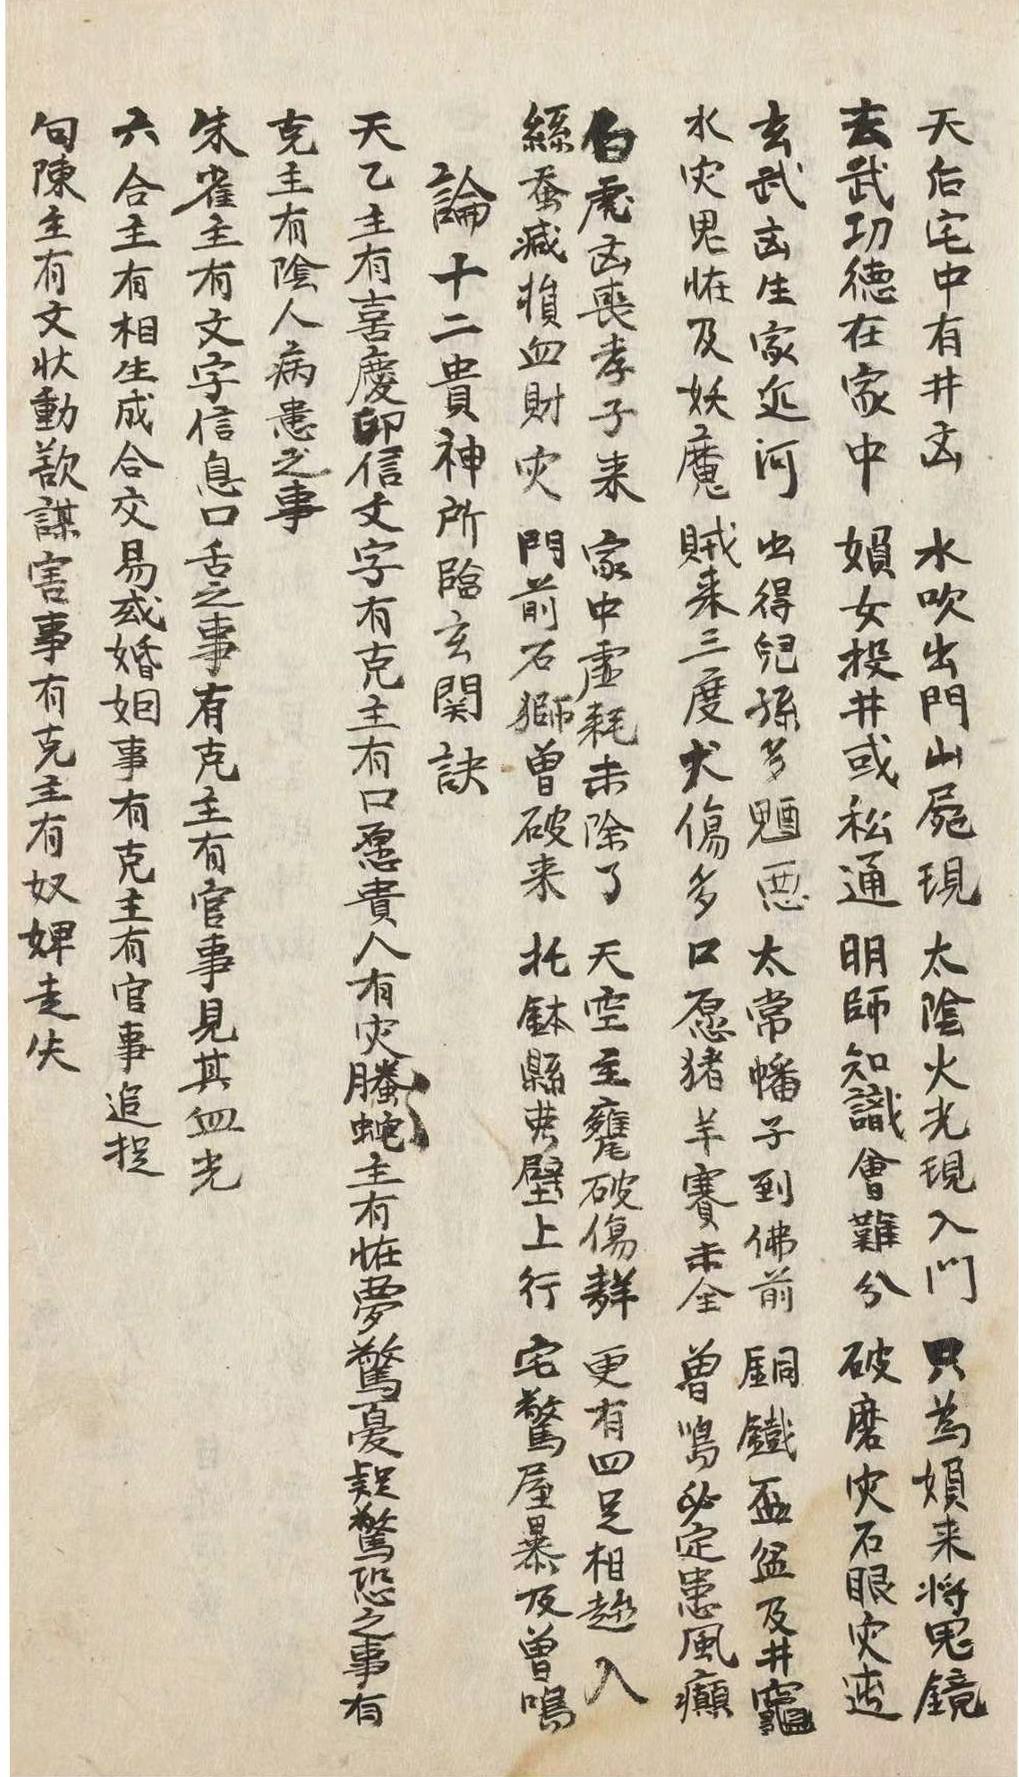 天后宅中有井凶　水吹出門山屍現　太陰火光現入門　只為娟来将鬼鏡
玄武功德在家中　娟女投井或私通　明師知識會難分　破磨灾石眼灾迍
玄武凶生家近河　出得兒孫多魍惡　太常幡子到佛前　銅鐵盃盆及井竈
水灾鬼怪及妖魔　賊来三度犬傷多　口愿猪羊賽未全　曾鳴必定患風癲
白虎凶喪孝子来　家中虚耗未除了　天空主甕破傷群　更有四足相趂入
絲蚕减損血財灾　門前石獅曾破来　托鉢縣壁上行　宅驚屋暴及曾鳴
論十二貴神所臨玄関訣
天乙主有喜慶印信文字有克主有口愿貴人有灾螣蛇主有怪夢驚憂疑驚恐之事有
克主有陰人病患之事
朱雀主有文字信息口舌之事有克主有官事見其血光
六合主有相生成合交易或婚姻事有克主有官事追捉
句陳主有文状動欲謀害事有克主有奴婢走失